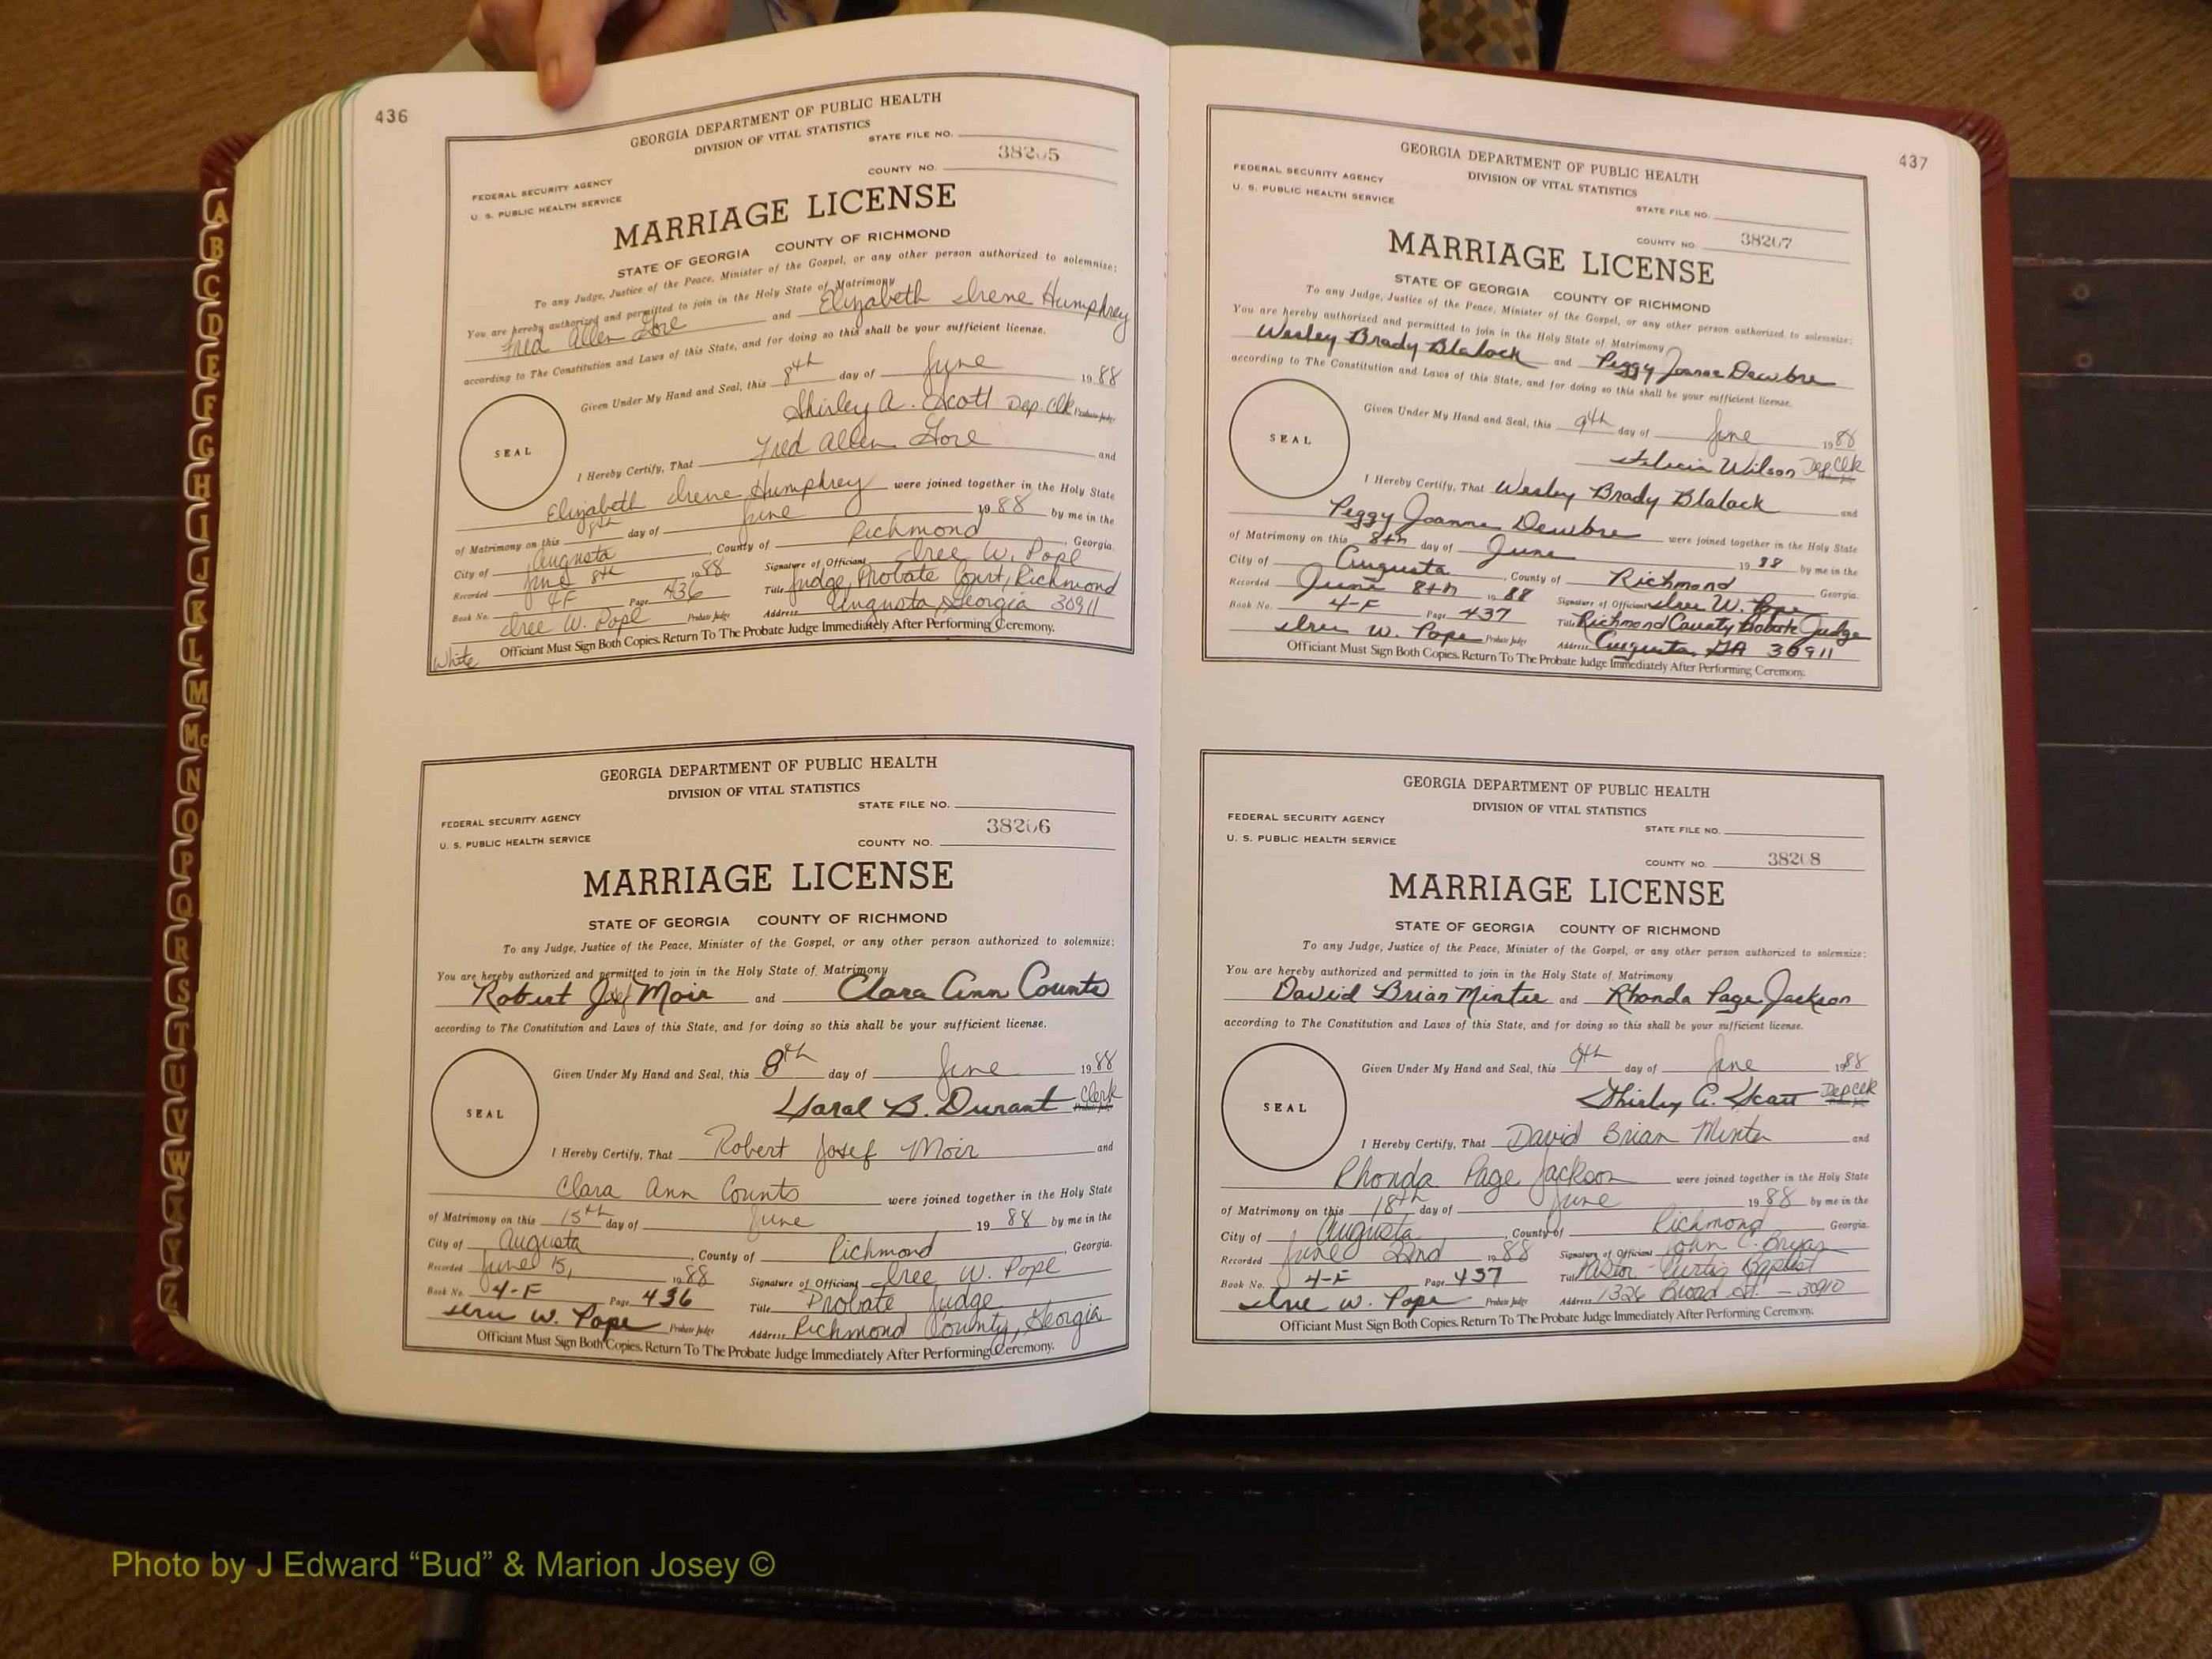 436
GEORGIA DEPARTMENT OF PUBLIC HEALTH
DIVISION OF VITAL STATISTICS
STATE FILE NO.
38205
COUNTY NO.
FEDERAL SECURITY AGENCY
U. S. PUBLIC HEALTH SERVICE
MARRIAGE LICENSE
STATE OF GEORGIA COUNTY OF RICHMOND
To any Judge, Justice of the Peace, Minister of the Gospel, or any other person authorized to solemnize:
You are hereby authorized and permitted to join in the Holy State of Matrimony
Fred Allen Gore and Elizabeth Irene Humphrey
according to The Constitution and Laws of this State, and for doing so this shall be your sufficient license.
Given Under My Hand and Seal, this 8th day of June 1988
Shirley A. Scott Dep. Clk Probate Judge
SEAL
I Hereby Certify, That Fred Allen Gore and
Elizabeth Irene Humphrey were joined together in the Holy State
of Matrimony on this 8th day of June 1988 by me in the
City of Augusta, County of Richmond, Georgia.
Recorded June 8th 1988 Signature of Officiant Iree W. Pope
Book No. 4F Page 436 Title Judge, Probate Court, Richmond
Iree W. Pope Probate Judge Address Augusta, Georgia 30911
Officiant Must Sign Both Copies. Return To The Probate Judge Immediately After Performing Ceremony.
White
GEORGIA DEPARTMENT OF PUBLIC HEALTH
DIVISION OF VITAL STATISTICS
STATE FILE NO.
FEDERAL SECURITY AGENCY
38206
U. S. PUBLIC HEALTH SERVICE
COUNTY NO.
MARRIAGE LICENSE
STATE OF GEORGIA COUNTY OF RICHMOND
To any Judge, Justice of the Peace, Minister of the Gospel, or any other person authorized to solemnize:
You are hereby authorized and permitted to join in the Holy State of Matrimony
Robert Josef Moir and Clara Ann Counts
according to The Constitution and Laws of this State, and for doing so this shall be your sufficient license.
Given Under My Hand and Seal, this 8th day of June 1988
B. Durant Clerk Probate Judge
SEAL
I Hereby Certify, That Robert Josef Moir and
Clara Ann Counts were joined together in the Holy State
of Matrimony on this 15th day of June 1988 by me in the
City of Augusta, County of Richmond, Georgia.
Recorded June 15, 1988 Signature of Officiant Iree W. Pope
Book No. 4-F Page 436 Title Probate Judge
Iree W. Pope Probate Judge Address Richmond County, Georgia
Officiant Must Sign Both Copies. Return To The Probate Judge Immediately After Performing Ceremony.
437
GEORGIA DEPARTMENT OF PUBLIC HEALTH
DIVISION OF VITAL STATISTICS
FEDERAL SECURITY AGENCY
U. S. PUBLIC HEALTH SERVICE
STATE FILE NO.
COUNTY NO. 38207
MARRIAGE LICENSE
STATE OF GEORGIA COUNTY OF RICHMOND
To any Judge, Justice of the Peace, Minister of the Gospel, or any other person authorized to solemnize:
You are hereby authorized and permitted to join in the Holy State of Matrimony
Wesley Brady Blalock and Peggy Joanne Dewbre
according to The Constitution and Laws of this State, and for doing so this shall be your sufficient license.
Given Under My Hand and Seal, this 9th day of June 1988
Felecia Wilson Dep. Clk
SEAL
I Hereby Certify, That Wesley Brady Blalock and
Peggy Joanne Dewbre were joined together in the Holy State
of Matrimony on this 8th day of June 1988 by me in the
City of Augusta, County of Richmond Georgia.
Recorded June 8th 1988 Signature of Officiant Iree W. Pope
Book No. 4-F Page 437 Title Richmond County Probate Judge
Iree W. Pope Probate Judge Address Augusta, GA 30911
Officiant Must Sign Both Copies. Return To The Probate Judge Immediately After Performing Ceremony.
GEORGIA DEPARTMENT OF PUBLIC HEALTH
DIVISION OF VITAL STATISTICS
FEDERAL SECURITY AGENCY
STATE FILE NO.
U. S. PUBLIC HEALTH SERVICE
COUNTY NO. 38208
MARRIAGE LICENSE
STATE OF GEORGIA COUNTY OF RICHMOND
To any Judge, Justice of the Peace, Minister of the Gospel, or any other person authorized to solemnize:
You are hereby authorized and permitted to join in the Holy State of Matrimony
David Brian Minter and Rhonda Page Jackson
according to The Constitution and Laws of this State, and for doing so this shall be your sufficient license.
Given Under My Hand and Seal, this 9th day of June 1988
Shirley A. Scott Dep Clk
SEAL
I Hereby Certify, That David Brian Minter and
Rhonda Page Jackson were joined together in the Holy State
of Matrimony on this 18th day of June 1988 by me in the
City of Augusta, County of Richmond, Georgia.
Recorded June 22nd 1988 Signature of Officiant John C. Bryan
Book No. 4-F Page 437 Title Pastor - Curtis Baptist
Iree W. Pope Probate Judge Address 1326 Broad St. - 30910
Officiant Must Sign Both Copies. Return To The Probate Judge Immediately After Performing Ceremony.
A
B
C
D
E
F
G
H
I
J
K
L
M
Mc
N
O
P
Q
R
S
T
U
V
W
X
Y
Z
Photo by J Edward “Bud” & Marion Josey ©